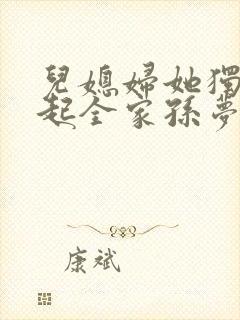 兒媳婦她獨
起全家孫夢
康斌